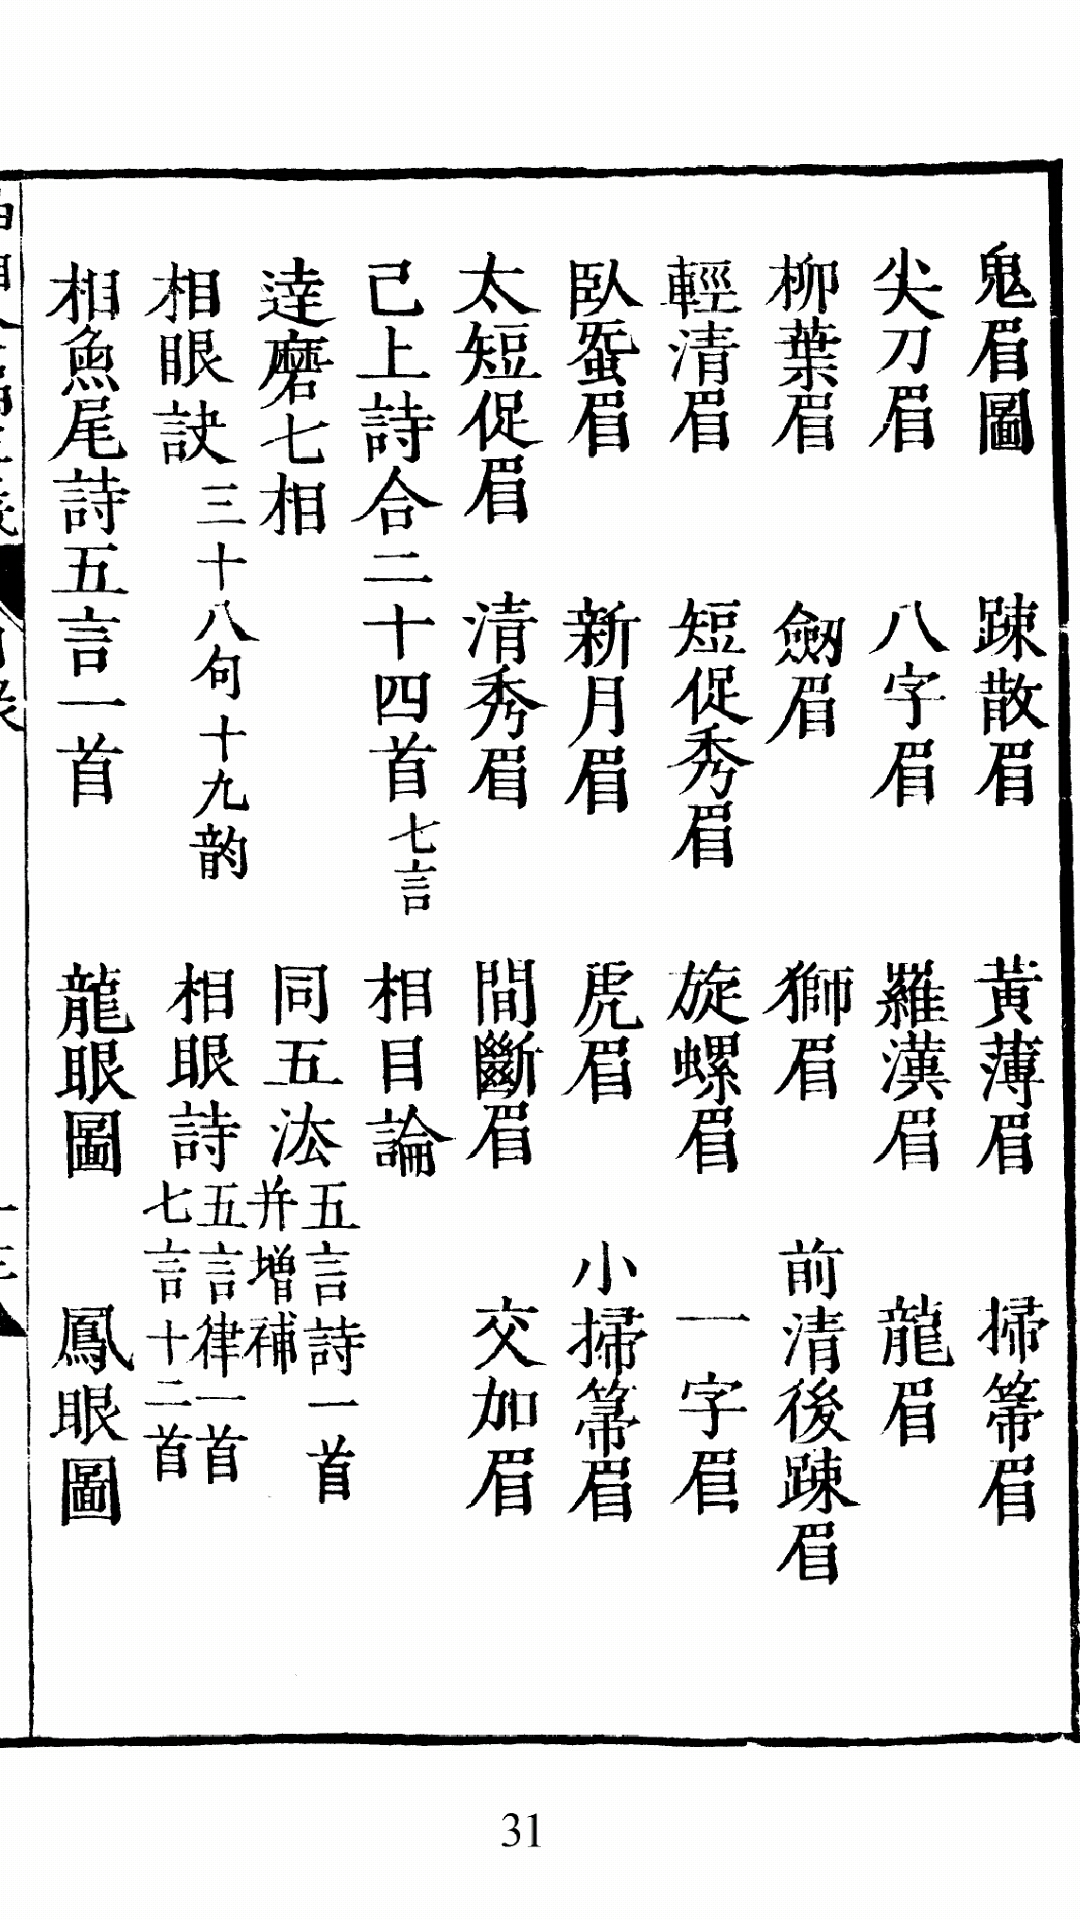 鬼眉圖 踈散眉 黃薄眉 掃箒眉
尖刀眉 八字眉 羅漢眉 龍眉
柳葉眉 劔眉 獅眉 前清後踈眉
輕清眉 短促秀眉 旋螺眉 一字眉
臥蚕眉 新月眉 虎眉 小掃箒眉
太短促眉 清秀眉 間斷眉 交加眉
己上詩合二十四首七言 相目論
達磨七相 同五法五言詩一首并增補
相眼訣三十八句十九韵 相眼詩五言律一首七言十二首
相魚尾詩五言一首 龍眼圖 鳳眼圖
31